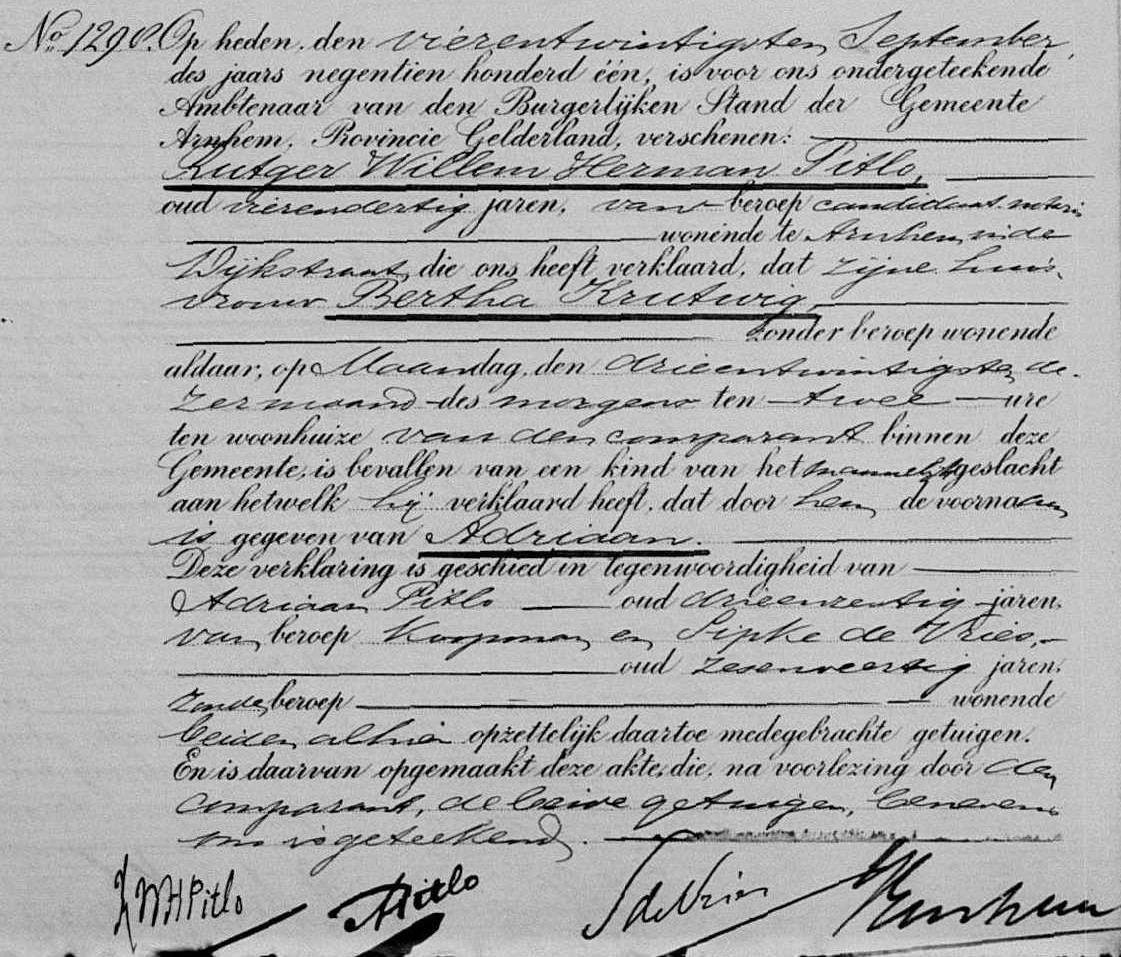 No. 1290. Op heden, den vierentwintigsten September,
des jaars negentien honderd één, is voor ons ondergeteekende
Ambtenaar van den Burgerlijken Stand der Gemeente
Arnhem, Provincie Gelderland, verschenen:
Rutger Willem Herman Pitlo,
oud vierendertig jaren, van beroep candidaat notaris
wonende te Arnhem, in de
Wijkstraat, die ons heeft verklaard, dat zijne huis-
vrouw Bertha Krutwig,
zonder beroep wonende
aldaar, op Maandag, den drieentwintigsten de-
zer maand des morgens ten twee ure
ten woonhuize van den comparant binnen deze
Gemeente, is bevallen van een kind van het mannelijk geslacht
aan hetwelk hij verklaard heeft, dat door hem de voornaam
is gegeven van Adriaan.
Deze verklaring is geschied in tegenwoordigheid van
Adriaan Pitlo oud drieenzestig jaren,
van beroep Koopman en Sipke de Vries,
oud zesenveertig jaren,
zonder beroep wonende
beiden alhier opzettelijk daartoe medegebrachte getuigen.
En is daarvan opgemaakt deze akte, die, na voorlezing door den
comparant, de beide getuigen, benevens
ons is geteekend.
RWHPitlo APitlo S de Vries